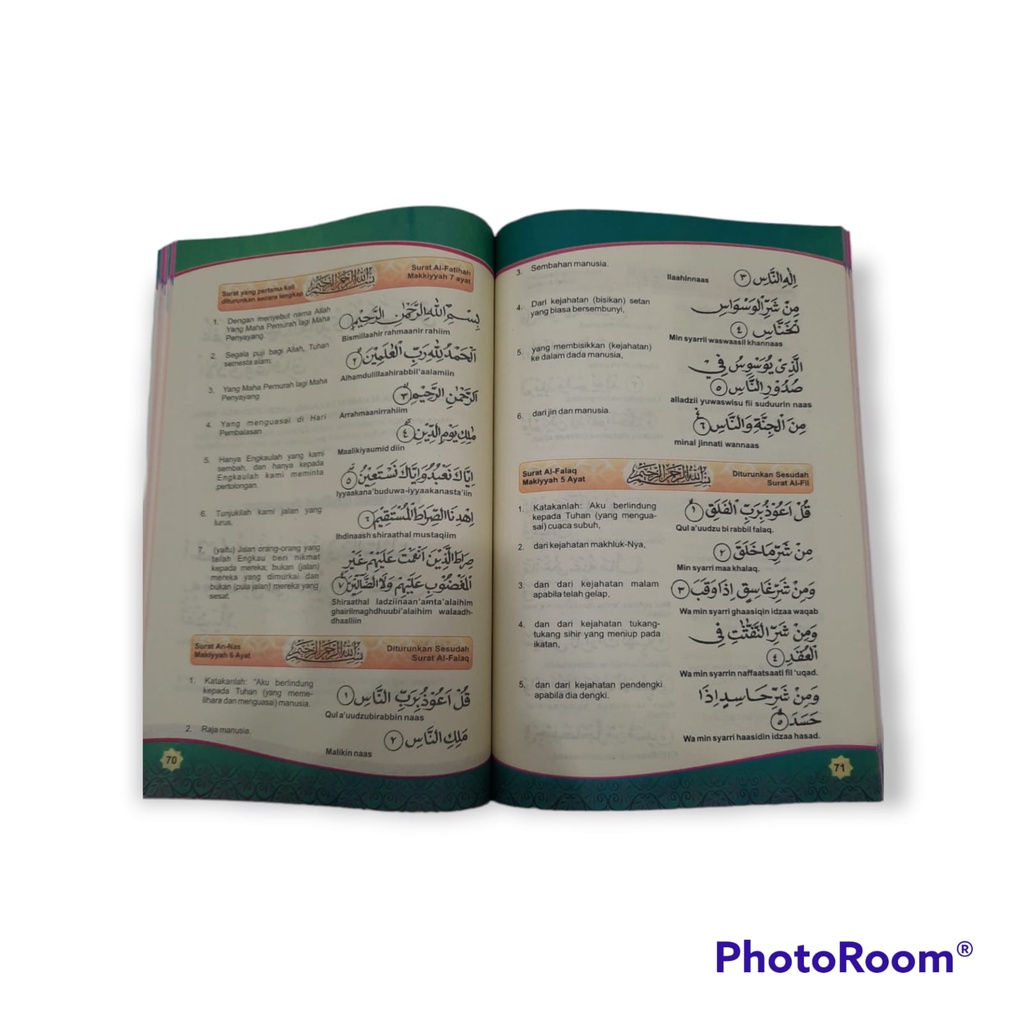 Surat yang pertama kali
diturunkan secara lengkap
Surat Al-Fatihah
Makkiyyah 7 ayat
1. Dengan menyebut nama Allah
Yang Maha Pemurah lagi Maha
Penyayang
بِسْمِ اللّٰهِ الرَّحْمٰنِ الرَّحِيْمِ ١
Bismillaahir rahmaanir rahiim
2. Segala puji bagi Allah, Tuhan
semesta alam.
اَلْحَمْدُ لِلّٰهِ رَبِّ الْعٰلَمِيْنَ ٢
Alhamdulillaahirabbil'aalamiin
3. Yang Maha Pemurah lagi Maha
Penyayang
اَلرَّحْمٰنِ الرَّحِيْمِ ٣
Arrahmaanirrahiim
4. Yang menguasai di Hari
Pembalasan
مٰلِكِ يَوْمِ الدِّيْنِ ٤
Maalikiyaumid diin
5. Hanya Engkaulah yang kami
sembah, dan hanya kepada
Engkaulah kami meminta
pertolongan.
اِيَّاكَ نَعْبُدُ وَاِيَّاكَ نَسْتَعِيْنُ ٥
Iyyaakana'buduwa-iyyaakanasta'iin
6. Tunjukilah kami jalan yang
lurus.
اِهْدِنَا الصِّرَاطَ الْمُسْتَقِيْمَ ٦
Ihdinaash shiraathal mustaqiim
7. (yaitu) Jalan orang-orang yang
telah Engkau beri nikmat
kepada mereka; bukan (jalan)
mereka yang dimurkai dan
bukan (pula jalan) mereka yang
sesat.
صِرَاطَ الَّذِيْنَ اَنْعَمْتَ عَلَيْهِمْ غَيْرِ
الْمَغْضُوْبِ عَلَيْهِمْ وَلَا الضَّآلِّيْنَ ٧
Shiraathal ladziinaan'amta'alaihim
ghairilmaghdhuubi'alaihim walaadh-
dhaalliin
Surat An-Nas
Makiyyah 6 Ayat
بِسْمِ اللّٰهِ الرَّحْمٰنِ الرَّحِيْمِ
Diturunkan Sesudah
Surat Al-Falaq
1. Katakanlah: "Aku berlindung
kepada Tuhan (yang meme-
lihara dan menguasai) manusia.
قُلْ اَعُوْذُ بِرَبِّ النَّاسِ ١
Qul a'uudzubirabbin naas
2. Raja manusia.
مَلِكِ النَّاسِ ٢
Malikin naas
70
3. Sembahan manusia.
اِلٰهِ النَّاسِ ٣
Ilaahinnaas
4. Dari kejahatan (bisikan) setan
yang biasa bersembunyi,
مِنْ شَرِّ الْوَسْوَاسِ
الْخَنَّاسِ ٤
Min syarril waswaasil khannaas
5. yang membisikkan (kejahatan)
ke dalam dada manusia,
الَّذِيْ يُوَسْوِسُ فِيْ
صُدُوْرِ النَّاسِ ٥
alladzii yuwaswisu fii suduurin naas
6. dari jin dan manusia.
مِنَ الْجِنَّةِ وَالنَّاسِ ٦
minal jinnati wannaas
Surat Al-Falaq
Makiyyah 5 Ayat
بِسْمِ اللّٰهِ الرَّحْمٰنِ الرَّحِيْمِ
Diturunkan Sesudah
Surat Al-Fiil
1. Katakanlah: Aku berlindung
kepada Tuhan (yang mengua-
sai) cuaca subuh,
قُلْ اَعُوْذُ بِرَبِّ الْفَلَقِ ١
Qul a'uudzu bi rabbil falaq.
2. dari kejahatan makhluk-Nya,
مِنْ شَرِّ مَا خَلَقَ ٢
Min syarri maa khalaq.
3. dan dari kejahatan malam
apabila telah gelap,
وَمِنْ شَرِّ غَاسِقٍ اِذَا وَقَبَ ٣
Wa min syarri ghaasiqin idzaa waqab
4. dan dari kejahatan tukang-
tukang sihir yang meniup pada
ikatan,
وَمِنْ شَرِّ النَّفّٰثٰتِ فِي
الْعُقَدِ ٤
Wa min syarrin naffaatsaati fil 'uqad.
5. dan dari kejahatan pendengki
apabila dia dengki.
وَمِنْ شَرِّ حَاسِدٍ اِذَا
حَسَدَ ٥
Wa min syarri haasidin idzaa hasad.
71
PhotoRoom®